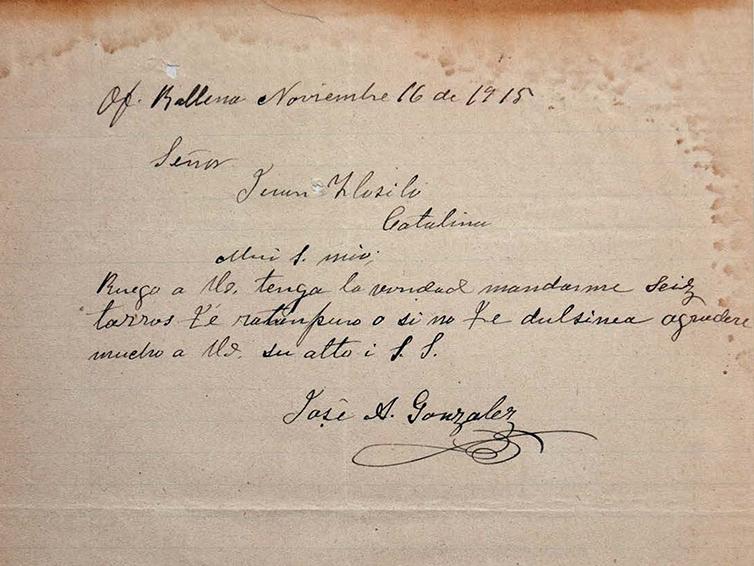 Of. Ballena Noviembre 16 de 1915
Señor
Juan
Catalina
Mui S. mio;
Ruego a Ud. tenga la vondad mandarme seiz
tarros Té ratanpuro o si no Te dulsinea agradere
mucho a Ud. su alto i S. S.
José A. Gonzalez